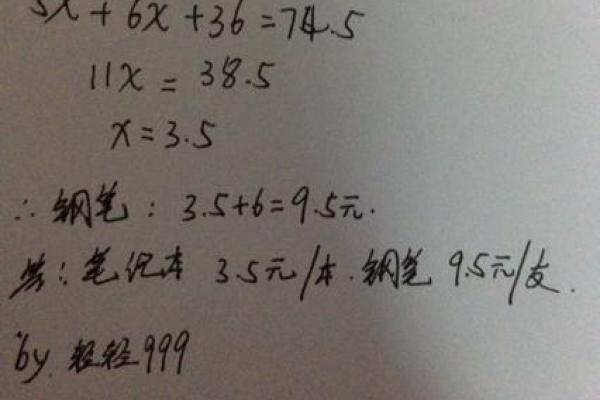 5x + 6x + 36 = 74.5
11x = 38.5
x = 3.5
∴ 钢笔: 3.5+6=9.5元.
答: 笔记本 3.5元/本. 钢笔 9.5元/支.
by. 轻轻999